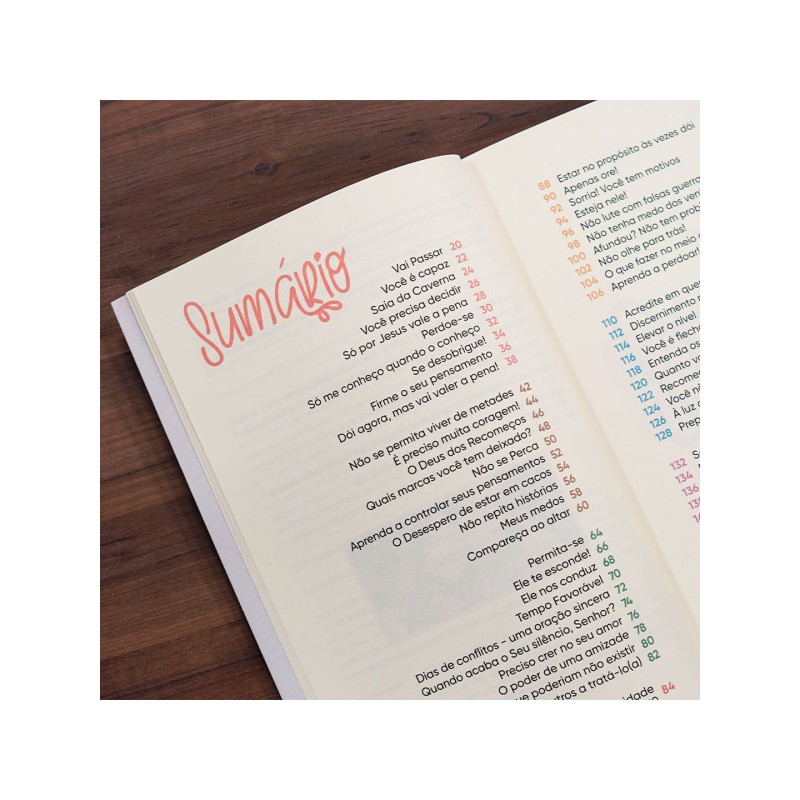 Sumário
Vai Passar 20
Você é capaz 22
Saia da Caverna 24
Você precisa decidir 26
Só por Jesus vale a pena 28
Perdoe-se 30
Só me conheço quando o conheço 32
Se desobrigue! 34
Firme o seu pensamento 36
Dói agora, mas vai valer a pena! 38
Não se permita viver de metades 42
É preciso muita coragem! 44
O Deus dos Recomeços 46
Quais marcas você tem deixado? 48
Não se Perca 50
Aprenda a controlar seus pensamentos 52
O Desespero de estar em cacos 54
Não repita histórias 56
Meus medos 58
Compareça ao altar 60
Permita-se 64
Ele te esconde! 66
Ele nos conduz 68
Tempo Favorável 70
Dias de conflitos - uma oração sincera 72
Quando acaba o Seu silêncio, Senhor? 74
Preciso crer no seu amor 76
O poder de uma amizade 78
que poderiam não existir 80
a tratá-lo(a) 82
84
88 Estar no propósito às vezes dói
90 Apenas ore!
92 Sorria! Você tem motivos
94 Esteja nele!
96 Não lute com falsas
98 Não tenha medo dos
100 Afundou? Não tem
102 Não olhe para trás!
104 O que fazer no meio
106 Aprenda a perdoar!
110 Acredite em
112 Discernimento
114 Elevar o nível!
116 Você é
118 Entenda os
120 Quanto
122
124 Você
126 À luz
128
132
134
136